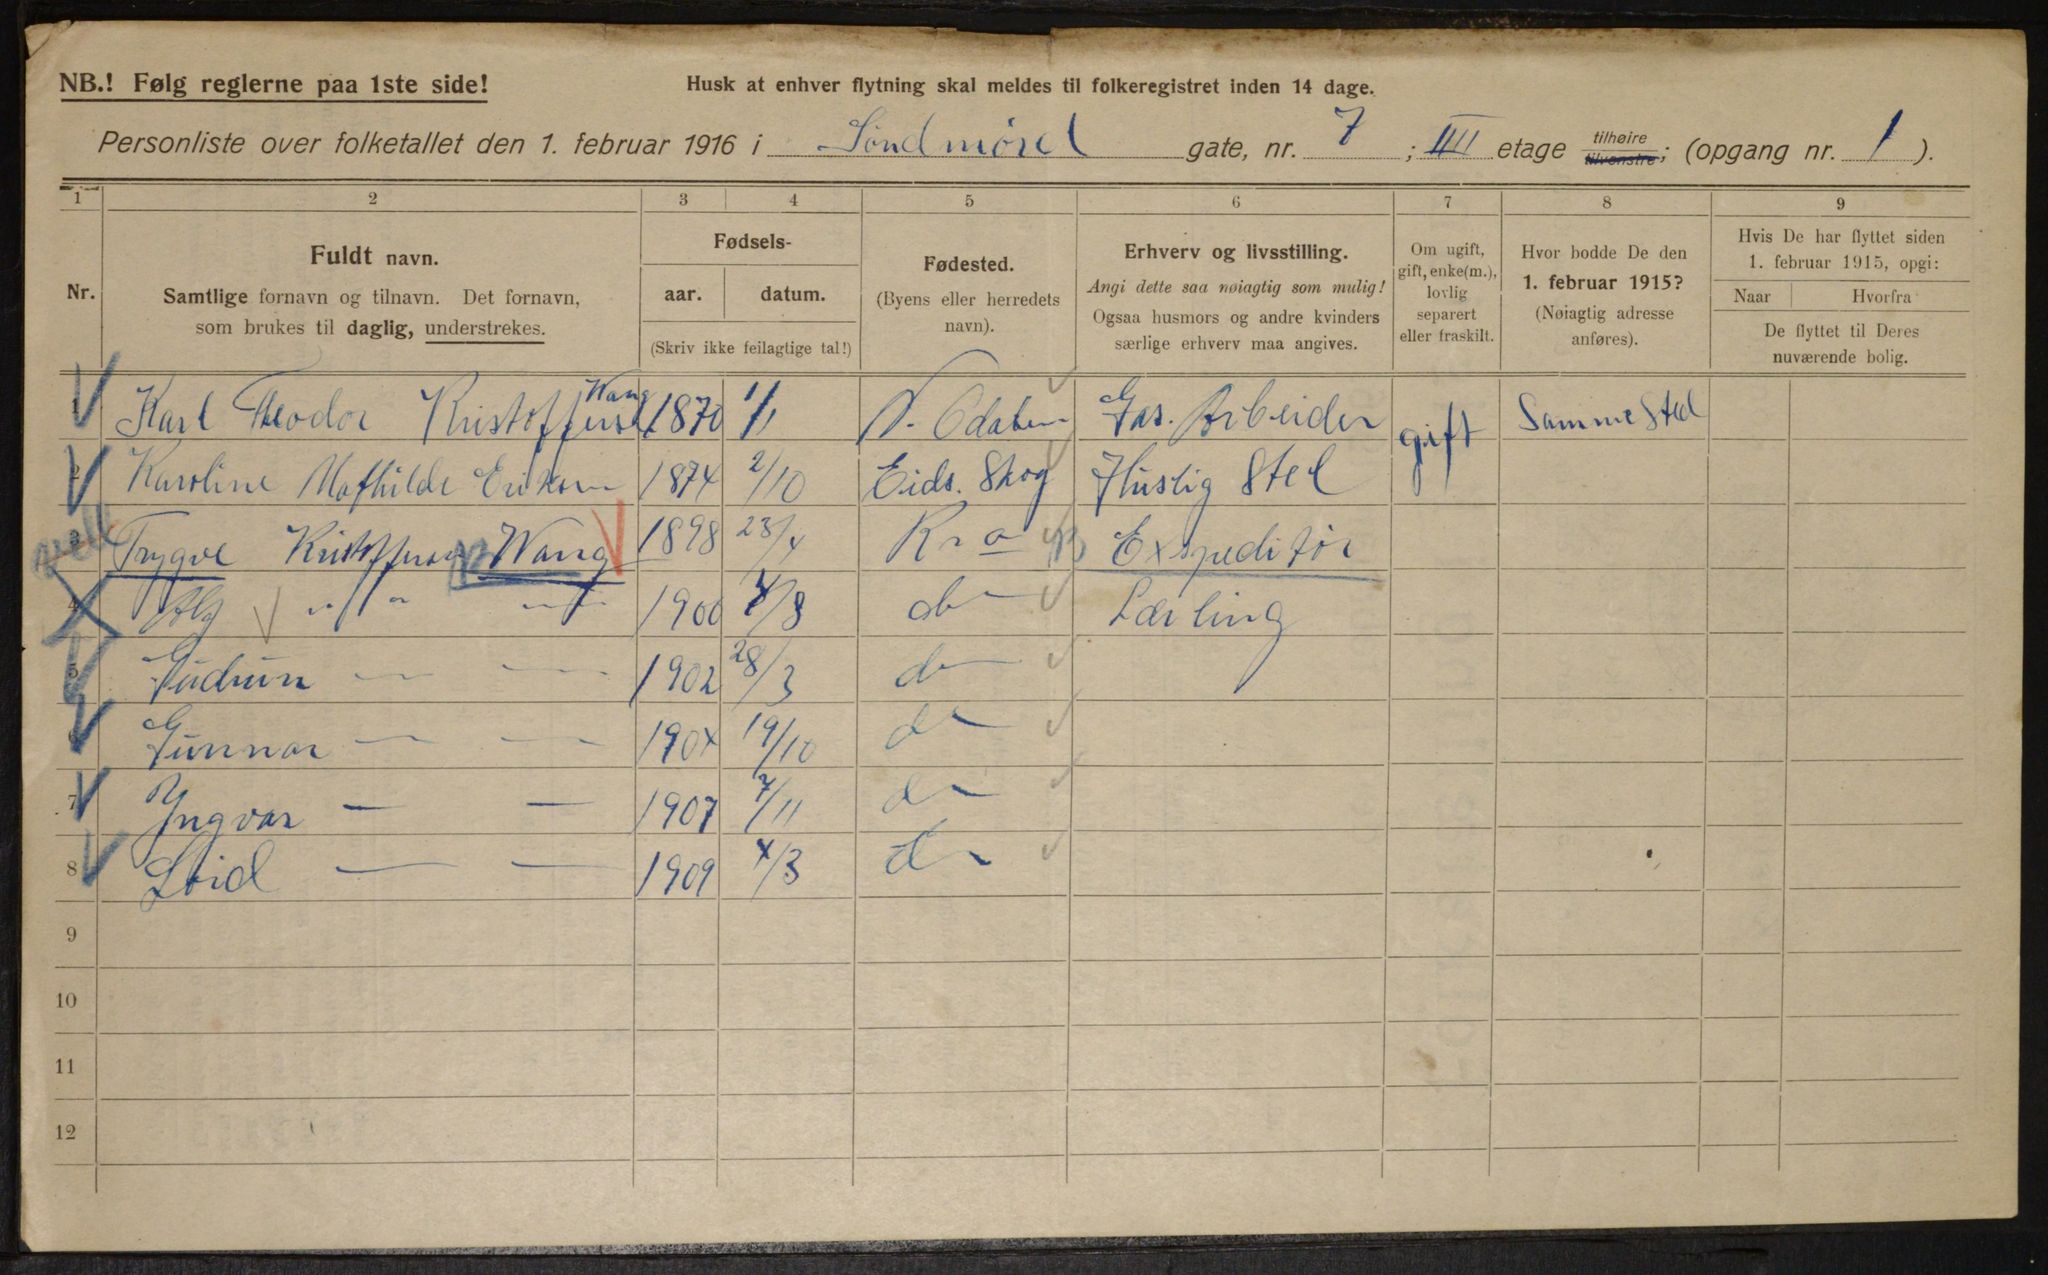 NB.! Følg reglerne paa 1ste side!
Husk at enhver flytning skal meldes til folkeregistret inden 14 dage.
Personliste over folketallet den 1. februar 1916 i Søndmørel gate, nr. 7 ; IIII etage tilhøire tilvenstre; (opgang nr. 1 ).
1 2 3 4 5 6 7 8 9
Nr.
Fuldt navn.
Samtlige fornavn og tilnavn. Det fornavn,
som brukes til daglig, understrekes.
Fødsels-
aar. datum.
(Skriv ikke feilagtige tal!)
Fødested.
(Byens eller herredets
navn).
Erhverv og livsstilling.
Angi dette saa nøiagtig som mulig!
Ogsaa husmors og andre kvinders
særlige erhverv maa angives.
Om ugift,
gift, enke(m.),
lovlig
separert
eller fraskilt.
Hvor bodde De den
1. februar 1915?
(Nøiagtig adresse
anføres).
Hvis De har flyttet siden
1. februar 1915, opgi:
Naar Hvorfra
De flyttet til Deres
nuværende bolig.
Wang
1 Karl Theodor Kristoffersen 1870 1/1 N. Odalen Gas. Arbeider gift Samme Sted
2 Karoline Mathilde Eriksen 1874 2/10 Eids. Skog Huslig Stel
3 Trygve Kristoffersen Wang 1898 23/4 Kra Expeditør
4 " " — 1900 /8 do Lærling
5 Gudrun — — 1902 28/3 do
6 Gunnar — — 1904 19/10 do
7 Yngvar — — 1907 7/11 do
8 — — 1909 4/3 do
9
10
11
12